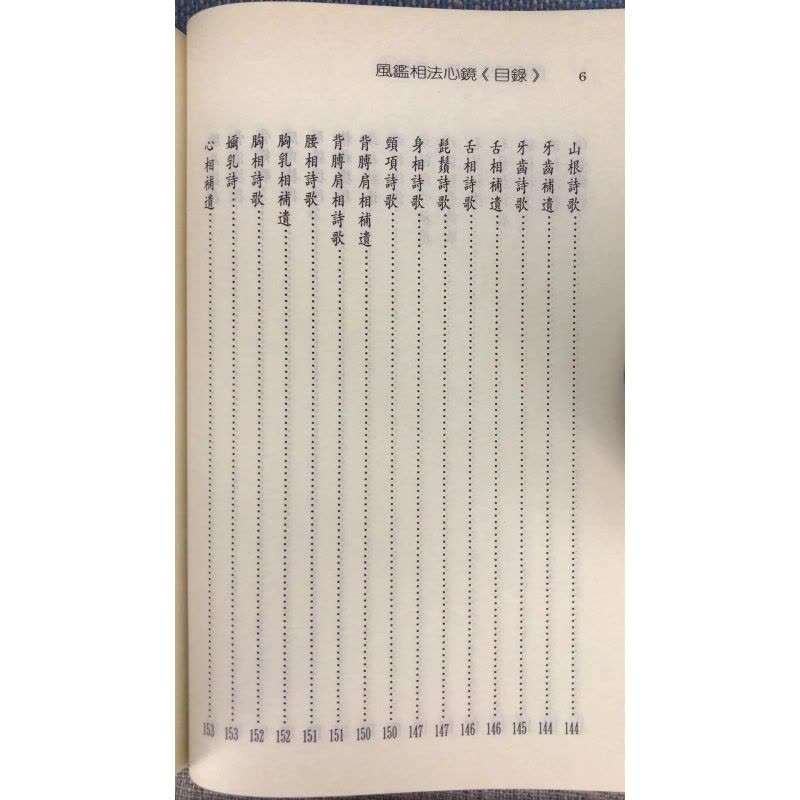 風鑑相法心鏡《目錄》 6
山根詩歌 144
牙齒補遺 144
牙齒詩歌 145
舌相補遺 146
舌相詩歌 146
髭鬚詩歌 147
身相詩歌 147
頸項詩歌 150
背膊肩相補遺 150
背膊肩相詩歌 151
腰相詩歌 151
胸乳相補遺 152
胸相詩歌 152
嬭乳詩 153
心相補遺 153